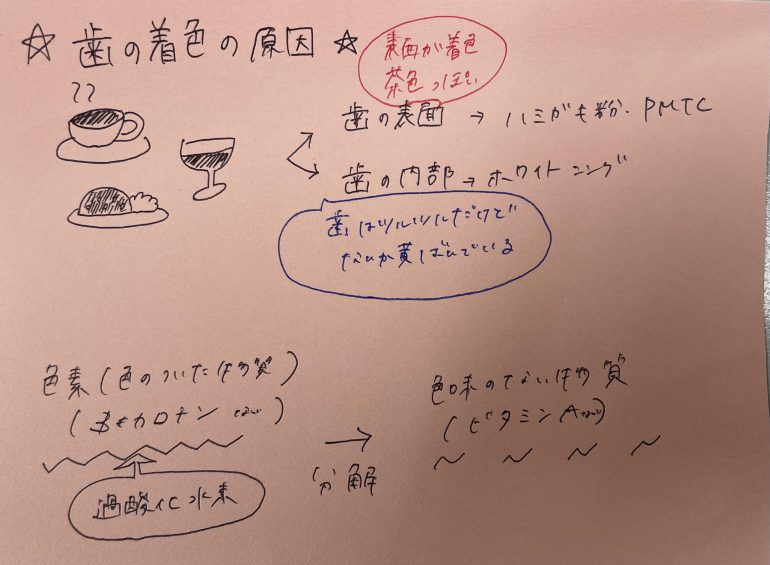 ☆ 歯の着色の原因 ☆
表面が着色
茶色っぽい
歯の表面 → ハミガキ粉・PMTC
歯の内部 → ホワイトニング
歯はツルツルだけど
なんか黄ばんでいる
色素(色のついた物質)
(カロチン など)
過酸化水素
→
分解
色味のない物質
(ビタミンAなど)